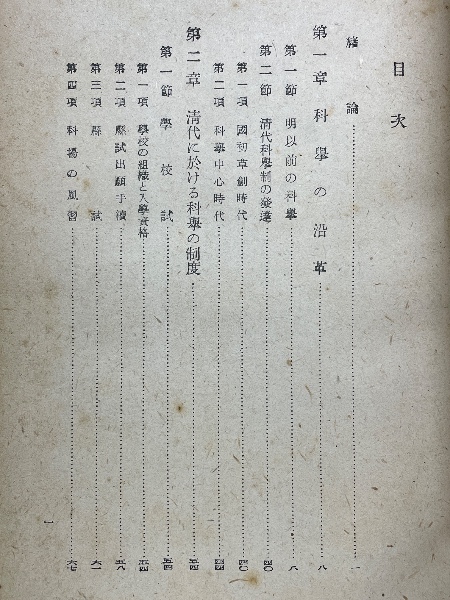 目次
緒論……一
第一章 科擧の沿革……八
第一節 明以前の科擧……八
第二節 清代科擧制の發達……四〇
第一項 國初草創時代……四〇
第二項 科擧中心時代……四四
第二章 清代に於ける科擧の制度……五四
第一節 學校試……五四
第一項 學校の組織と入學資格……五四
第二項 縣試出願手續……五八
第三項 縣試……六一
第四項 科場の風習……六七
一